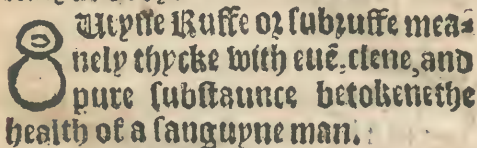 8 Uryne Ruffe oꝛ ſubꝛuffe mea⸗
nely thycke with euē, clene, and
pure ſubſtaunce betokenethe
health of a ſanguyne man.